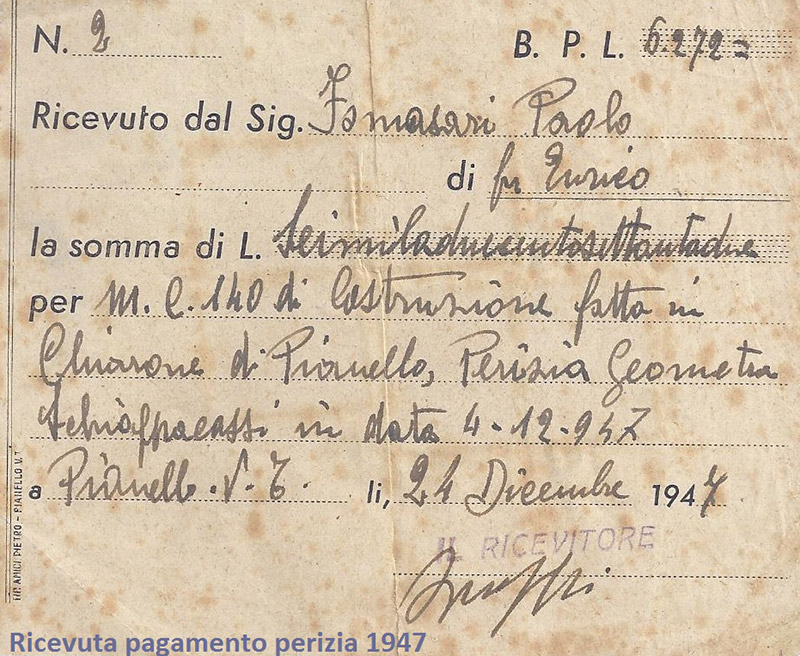 N. 2 B. P. L. 6.272=
Ricevuto dal Sig. Fomasari Paolo
di fu Enrico
la somma di L. Seimiladuecentosettantadue
per M. C. 140 di Costruzione fatta in
Chiarone di Pianello, Perizia Geometra
Schiappacassi in data 4-12-947
a Pianello. V. T. li, 24 Dicembre 1947
IL RICEVITORE
TIP. AMICI PIETRO - PIANELLO V. T.
Ricevuta pagamento perizia 1947